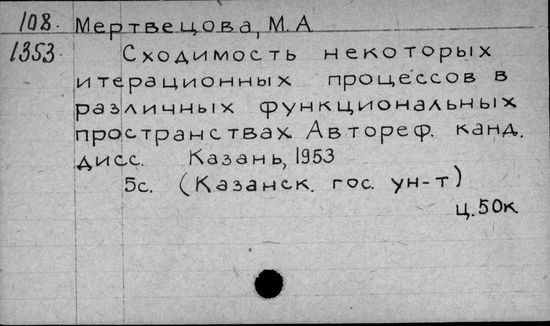 108. Мертвецова, М.А
1353 Сходимость некоторых
итерационных процессов в
различных функциональных
пространствах. Автореф. канд.
дисс. Казань, 1953
5с. (Казанск. гос. ун-т)
ц. 50к.